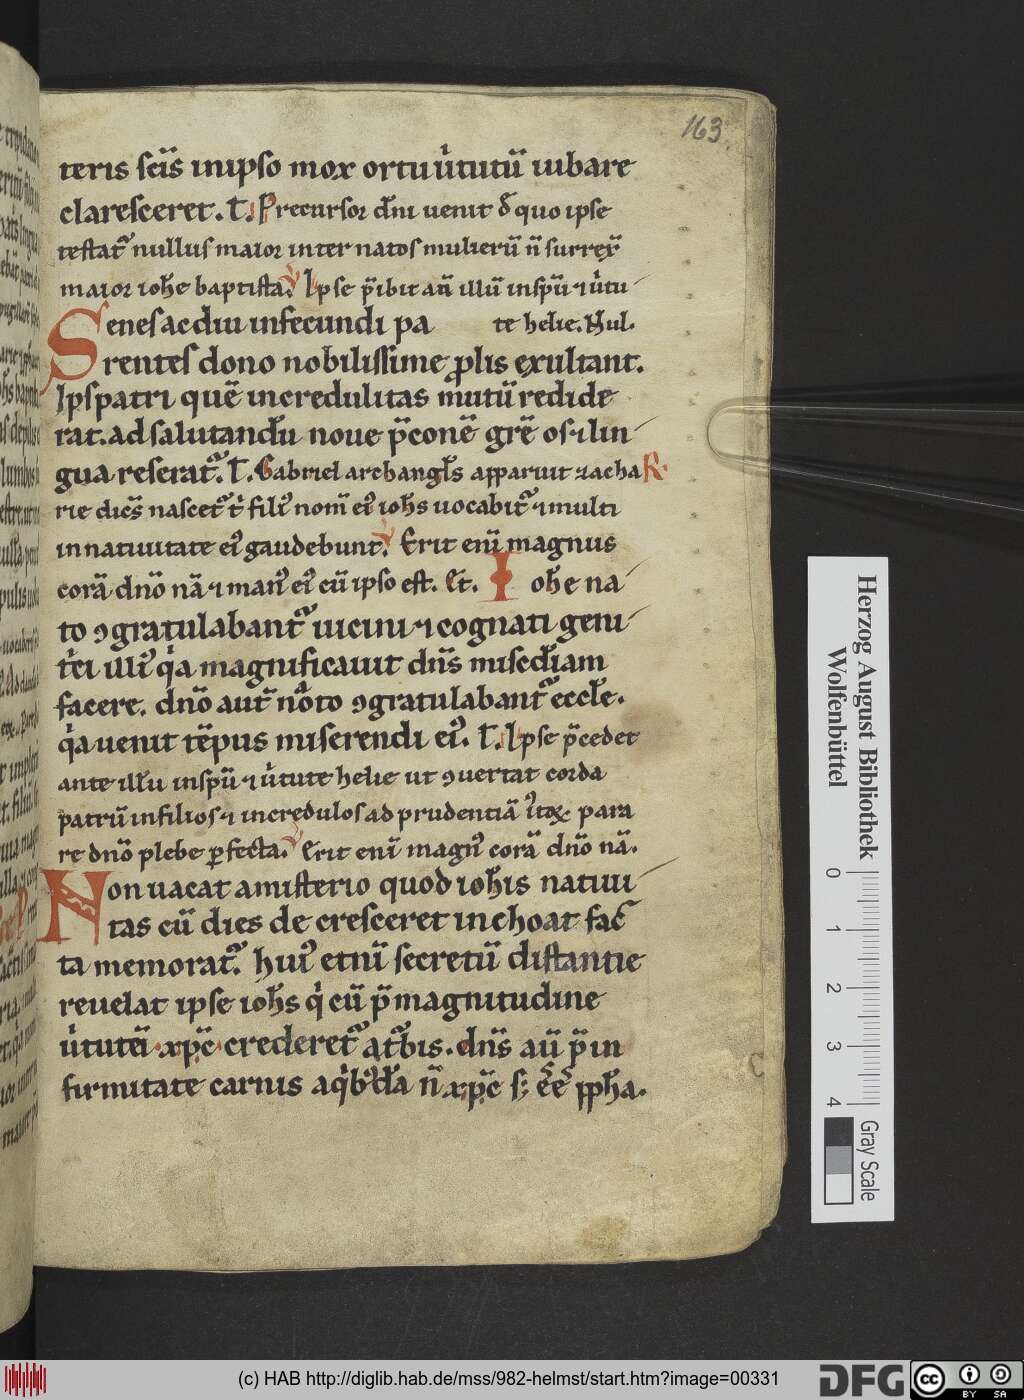 163
teris scīs in ipso mox ortu uͥtutū iubare
claresceret. T. Precursor dn̄i uenit d̄ quo ipse
testat᷒ nullus maior inter natos mulierū n̄ surrex̄
maior ioh̄e baptista. V Ipse p̄ibit an̄ illū in sp̄u ⁊ uͥtu
Senes ac diu infecundi pa te helie. Nul.
rentes dono nobilissime ꝓlis exultant.
Ips patri quē incredulitas mutū redide
rat. ad salutandū noue p̄conē grē os ⁊ lin
gua reserat᷒. T. Gabriel archangl̄s apparuit zacha R.
rie dicēs nascet᷒ t̄ filiꝰ nom̄ eiꝰ ioh̄s uocabit᷒ ⁊ multi
in natiuitate eiꝰ gaudebunt. V Erit eni magnus
corā dn̄o nā ⁊ manꝰ eiꝰ cū ipso est. Et. Ioh̄e na
to ꝯgratulabant᷒ uicini ⁊ cognati geni
t̄ei illiꝰ qͥa magnificauit dn̄s misēdiam
facere. dn̄o aut̄ nōto ꝯgratulabant᷒ eccl̄e.
qͥa uenit tēpus miserendi eiꝰ. T. Ipse p̄cedet
ante illū in sp̄u ⁊ uͥtute helie ut ꝯuertat corda
patrū in filios ⁊ incredulos ad prudentiā iͥtoꝝ para
re dn̄o plebē ꝑfectā. V Erit eni magnꝰ corā dn̄o nā.
Non uacat a misterio quod ioh̄is natiui
tas cū dies decresceret inchoat fac̄
ta memorat᷒. huiꝰ etnī secretū distantie
reuelat ipse ioh̄s qͥ cū p̄ magnitudine
uͥtutēi xp̄c crederet᷒ at᷒bis. dn̄s aū p̄ in
firmitate carnis aqͥbꝰdā n̄ xp̄c s; ēē ꝓph̄a.
Herzog August Bibliothek
Wolfenbüttel
0 1 2 3 4
Gray Scale
(c) HAB http://diglib.hab.de/mss/982-helmst/start.htm?image=00331
DFG
cc BY SA